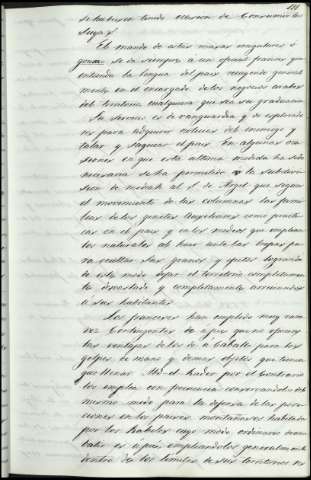 se hubiesen tenido ocasion de consumir los
suyos.
El mando de estas masas irregulares ó
goums se da siempre a un oficial frances que
entienda la lengua del pais recayendo general
mente en el encargado de los negocios arabes
del territorio cualquiera que sea su graduacion.
Su servicio es de vanguardia y de explorado
res para adquirir noticias del enemigo y
talar y saquear el pais. En algunas oca
siones en que esta ultima medida ha sido
necesaria se ha permitido á la subdivi
sion de Medeah al S. de Argel que sigan
el movimiento de las columnas las fami
lias de los ginetes auxiliares como practi
cas en el pais y en los medios que emplean
los naturales al huir ante las tropas pa
ra ocultar sus granos y efectos logrando
de este modo dejar el territorio completamen
te devastado y completamente arruinados
á sus habitantes.
Los franceses han empleado muy ra
ras contingentes de á pie que no ofrecen
las ventajas de los de á caballo para los
golpes de mano y demas objetos que tienen
que llenar. Abd-el-Kader por el contrario
los emplea con frecuencia conservandoles del
mismo modo para la defensa de las posi
ciones en los paises montañosos habitados
por los Kabilas cuyo modo ordinario de com
batir es á pie empleandolos generalmente
dentro de los limites de sus territorios res